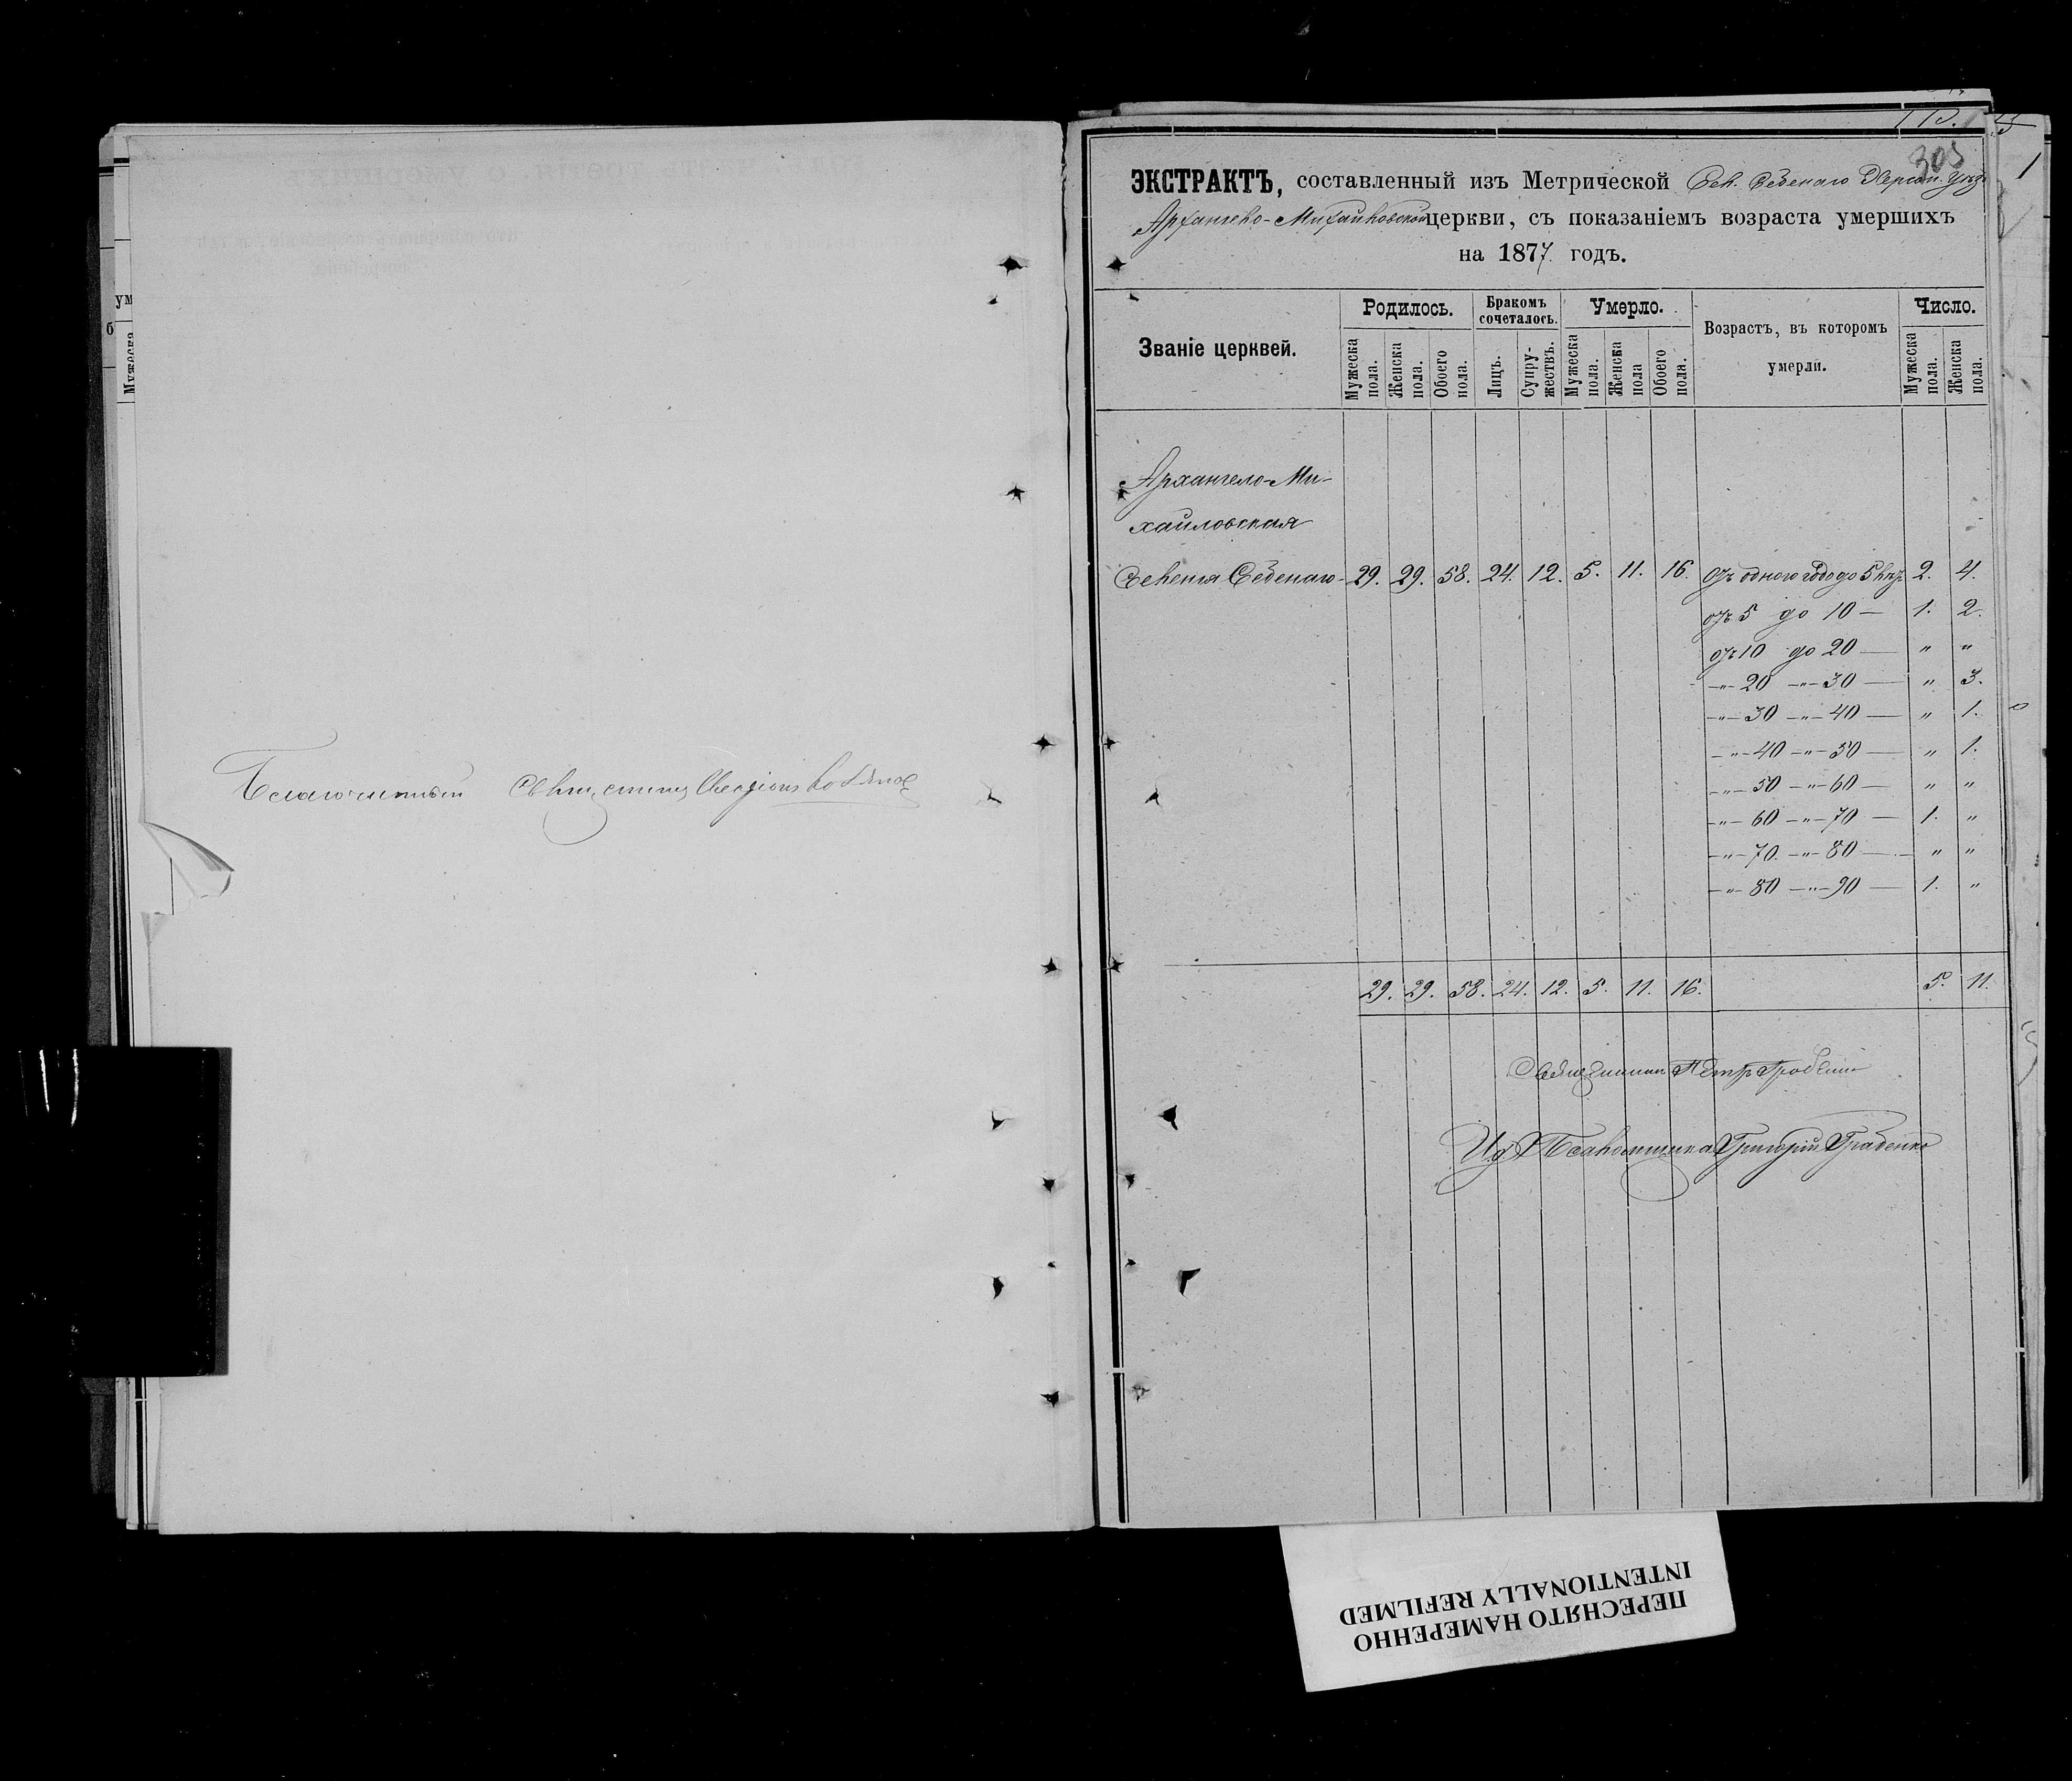 Благочинный Священникъ
113.
305
1
ЭКСТРАКТЪ, составленный изъ Метрической Сел. Себенаго Херсон. Уѣзд.
Архангело-Михайловской церкви, съ показаніемъ возраста умершихъ
на 1877. годъ.
Званіе церквей. Родилось. Бракомъ сочеталось. Умерло. Возрастъ, въ которомъ умерли. Число.
Мужеска пола. Женска пола. Обоего пола. Лицъ. Супружествъ. Мужеска пола. Женска пола Обоего пола. Мужеска пола. Женска пола.
Архангело-Ми-
хайловская
Селенія Себенаго 29. 29. 58. 24. 12. 5. 11. 16. Отъ одного года до 5 лѣтъ 2. 4.
отъ 5 до 10 — 1. 2.
отъ 10 до 20 — " "
—"— 20 —"— 30 — " 3.
—"— 30 —"— 40 — " 1.
—"— 40 —"— 50 — " 1.
—"— 50 —"— 60 — " "
—"— 60 —"— 70 — 1. "
—"— 70. —"— 80 — " "
—"— 80 —"— 90 — 1. "
29. 29. 58. 24. 12. 5. 11. 16. 5. 11.
Священникъ Петръ
И. д. Псаломщика Григорій Грабенко
ПЕРЕСНЯТО НАМЕРЕННО
INTENTIONALLY REFILMED